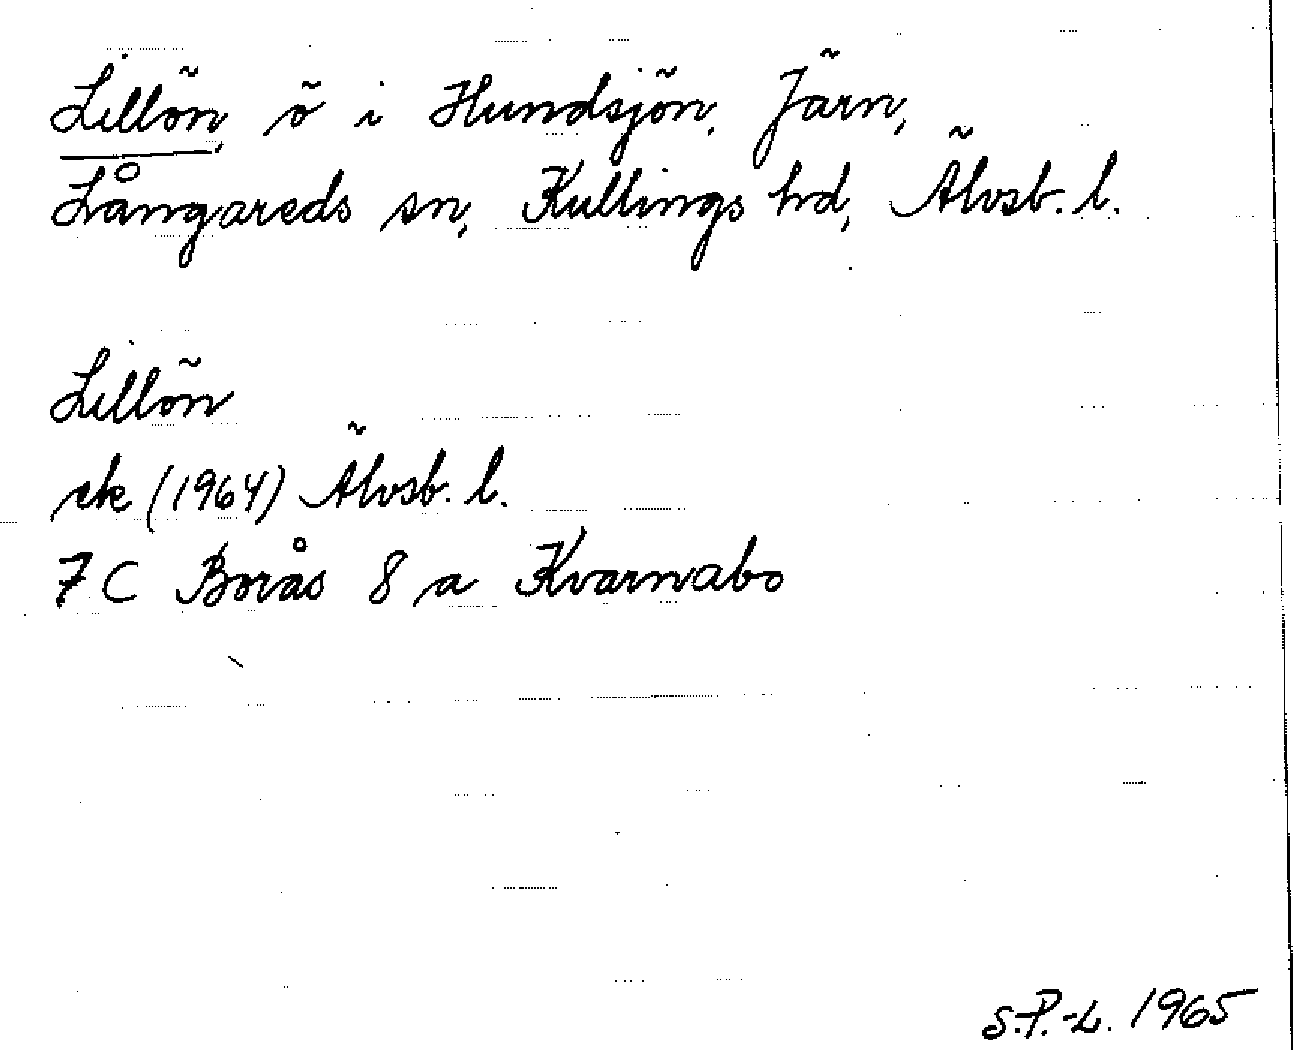 Lillön, ö i Hundsjön, Järn,
Långareds sn, Kullings hd, Älvsb. l.
Lillön
ek (1964) Älvsb. l.
7 C Borås 8 a Kvarnabo
S.P.-L. 1965